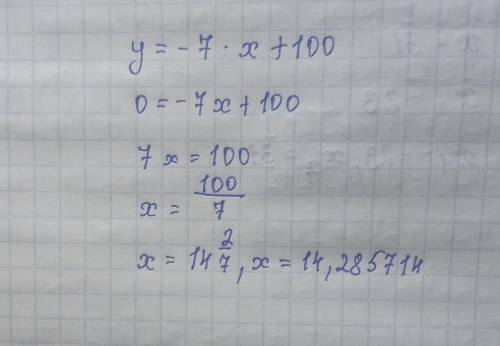 y = - 7 · x + 100
0 = - 7x + 100
7x = 100
x = 100/7
x = 14 2/7, x = 14,285714